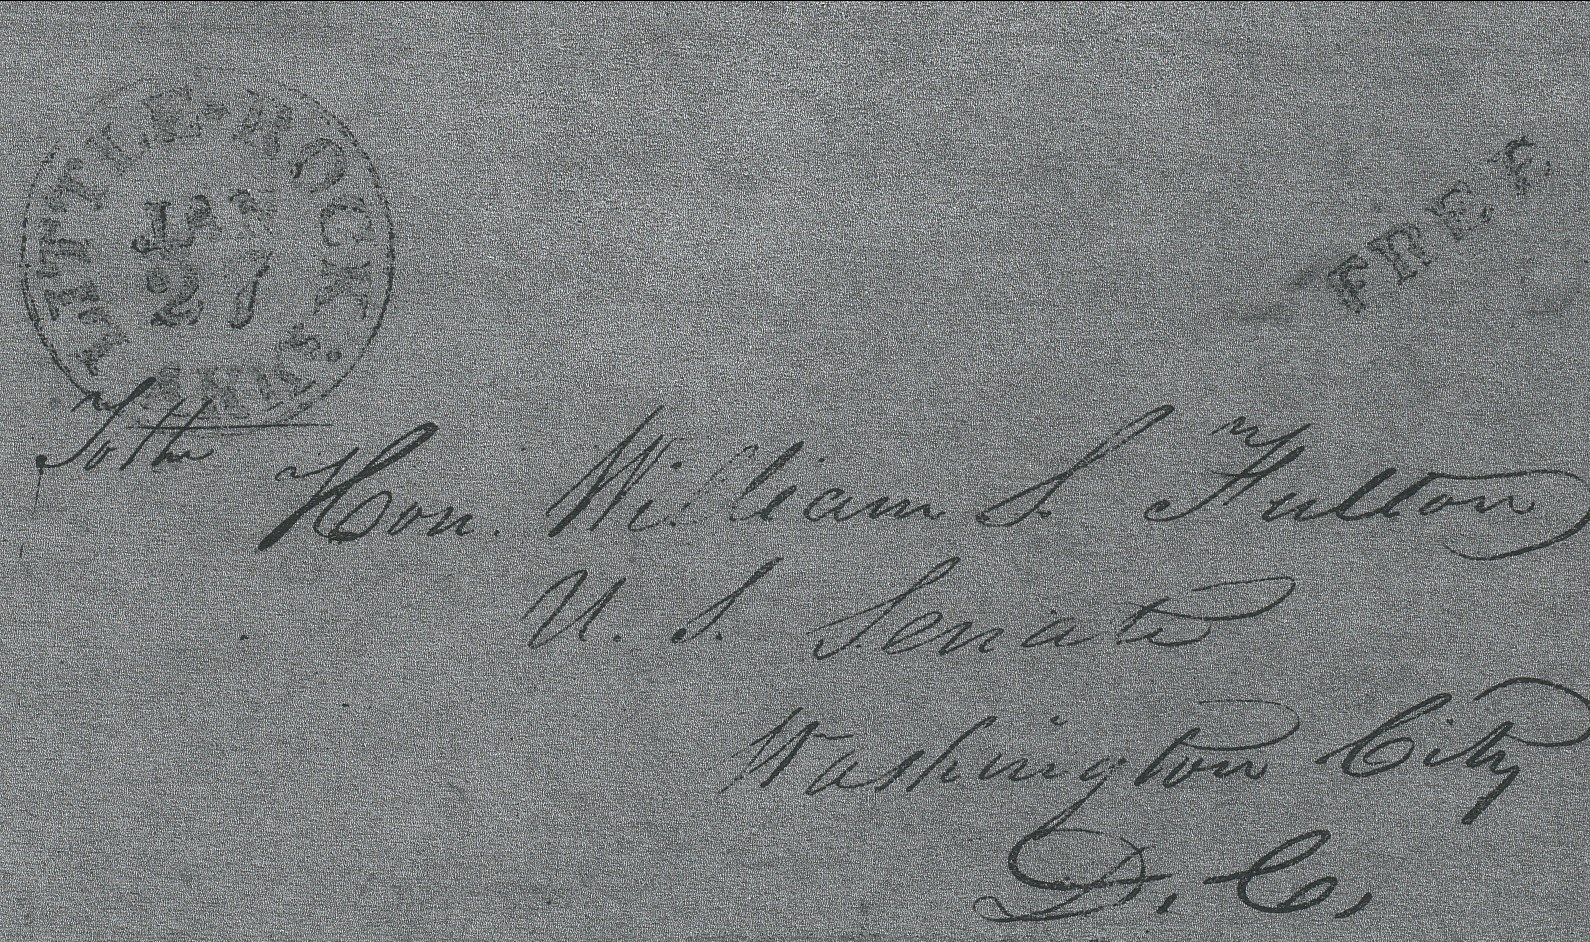 LITTLE-ROCK
JAN
21
ARK.
FREE
To the
Hon. William S. Fulton
U. S. Senate
Washington City
D. C.